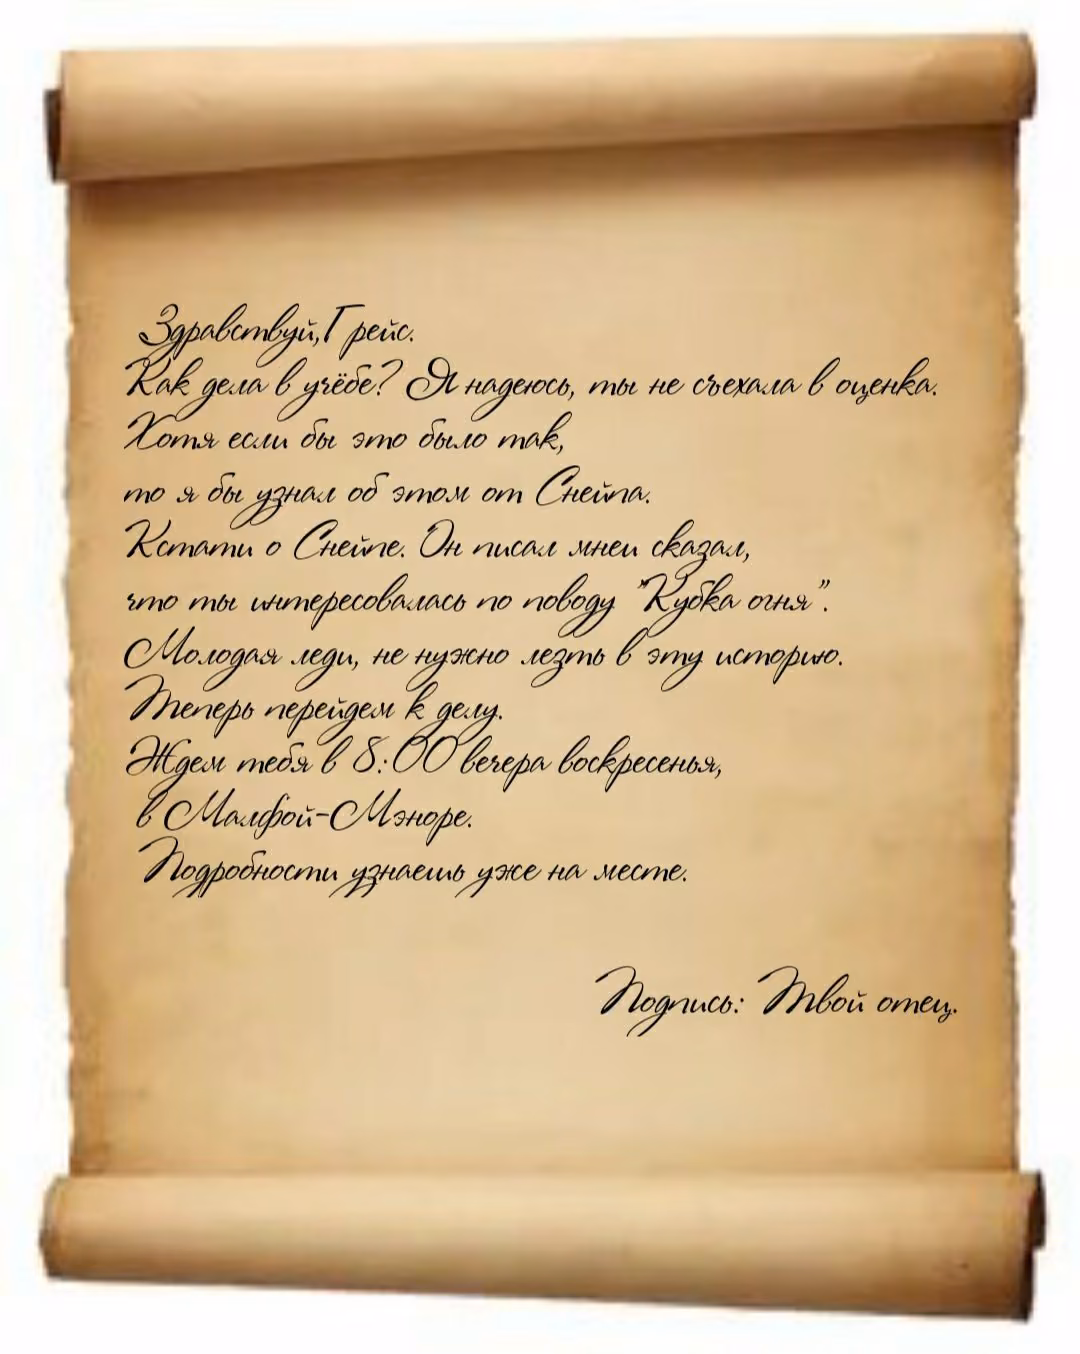 Здравствуй,Грейс.
Как дела в учёбе? Я надеюсь, ты не съехала в оценка.
Хотя если бы это было так,
то я бы узнал об этом от Снейпа.
Кстати о Снейпе. Он писал мнеи сказал,
что ты интересовалась по поводу "Кубка огня".
Молодая леди, не нужно лезть в эту историю.
Теперь перейдем к делу.
Ждем тебя в 8:00 вечера воскресенья,
в Малфой-Мэноре.
Подробности узнаешь уже на месте.
Подпись: Твой отец.